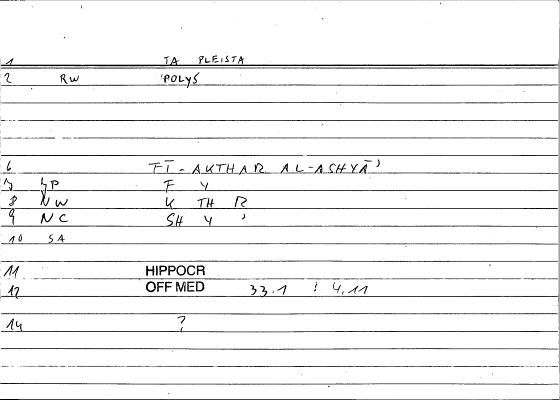 1 TA PLEISTA
2 RW POLYS
6 FĪ-AKTHAR AL-ASHYĀʾ
7 JP F Y
8 NW K TH R
9 NC SH Y ʾ
10 SA
11 HIPPOCR
12 OFF MED 33.1 : 4.11
14 ?